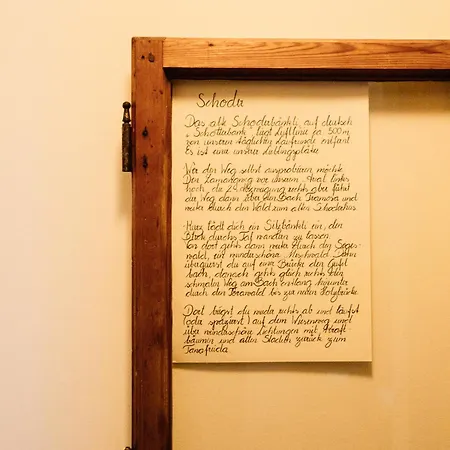 Schoda
Das alte Schodabänkli auf deutsch
Schattabank liegt Luftlinie ca. 500 m
von unserer täglichen Laufrunde entfernt
Es ist eine unserer Lieblingsplätze
Wer den Weg selbst ausprobieren möchte
Den vor unserem links
hoch, die 2. Abzweigung rechts aber führt
der Weg dann über den Bach und
weiter durch den Wald zum alten Schodahus.
Kurz lädt dich ein Sitzbänkli ein, den
Blick durchs Tal wandern zu lassen
Von dort gehts dann weiter durch den
wald, ein wunderschöner Mischwald. Dann
überquerst du auf einer Brücke den
bach, danach gehts gleich rechts den
schmalen Weg am Bach entlang hinunter
durch den wald bis zur neuen Holzbrücke.
Dort biegst du wieder rechts ab und läufst
(oda spazierst) auf dem Wiesenweg und
über wunderschöne Lichtungen mit
bäumen und alten Städeln zurück zum
Tanafreida.